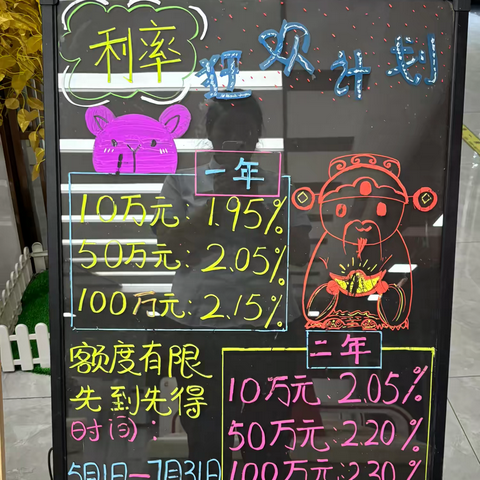 利率狂欢计划
一年
10万元:1.95%
50万元:2.05%
100万元:2.15%
额度有限
先到先得
时间:
5月1日—7月31日
二年
10万元:2.05%
50万元:2.20%
100万元:2.30%